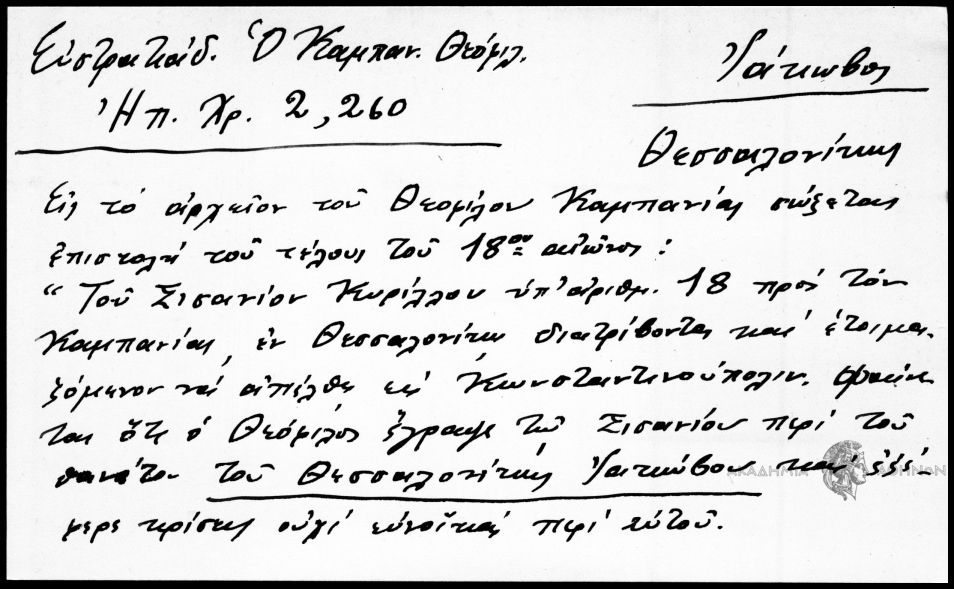 Εὐστρατιάδ. Ὁ Καμπαν. Θεόφιλ.
Ἠπ. Χρ. 2, 260
Ἰάκωβος
Θεσσαλονίκης
Εἰς τὸ ἀρχεῖον τοῦ Θεοφίλου Καμπανίας σώζεται
ἐπιστολὴ τοῦ τέλους τοῦ 18ου αἰῶνος:
“Τοῦ Σισανίου Κυρίλλου ὑπ' ἀριθμ. 18 πρὸς τὸν
Καμπανίας, ἐν Θεσσαλονίκῃ διατρίβοντα καὶ ἑτοιμα-
ζόμενον νὰ ἀπέλθῃ εἰς Κωνσταντινούπολιν. Φαίνε-
ται ὅτι ὁ Θεόφιλος ἔγραψε τῷ Σισανίου περὶ τοῦ
θανάτου τοῦ Θεσσαλονίκης Ἰακώβου καὶ ἐξέ-
φερε κρίσεις οὐχὶ εὐνοϊκὰς περὶ αὐτοῦ.
ΑΚΑΔΗΜΙΑ ΑΘΗΝΩΝ